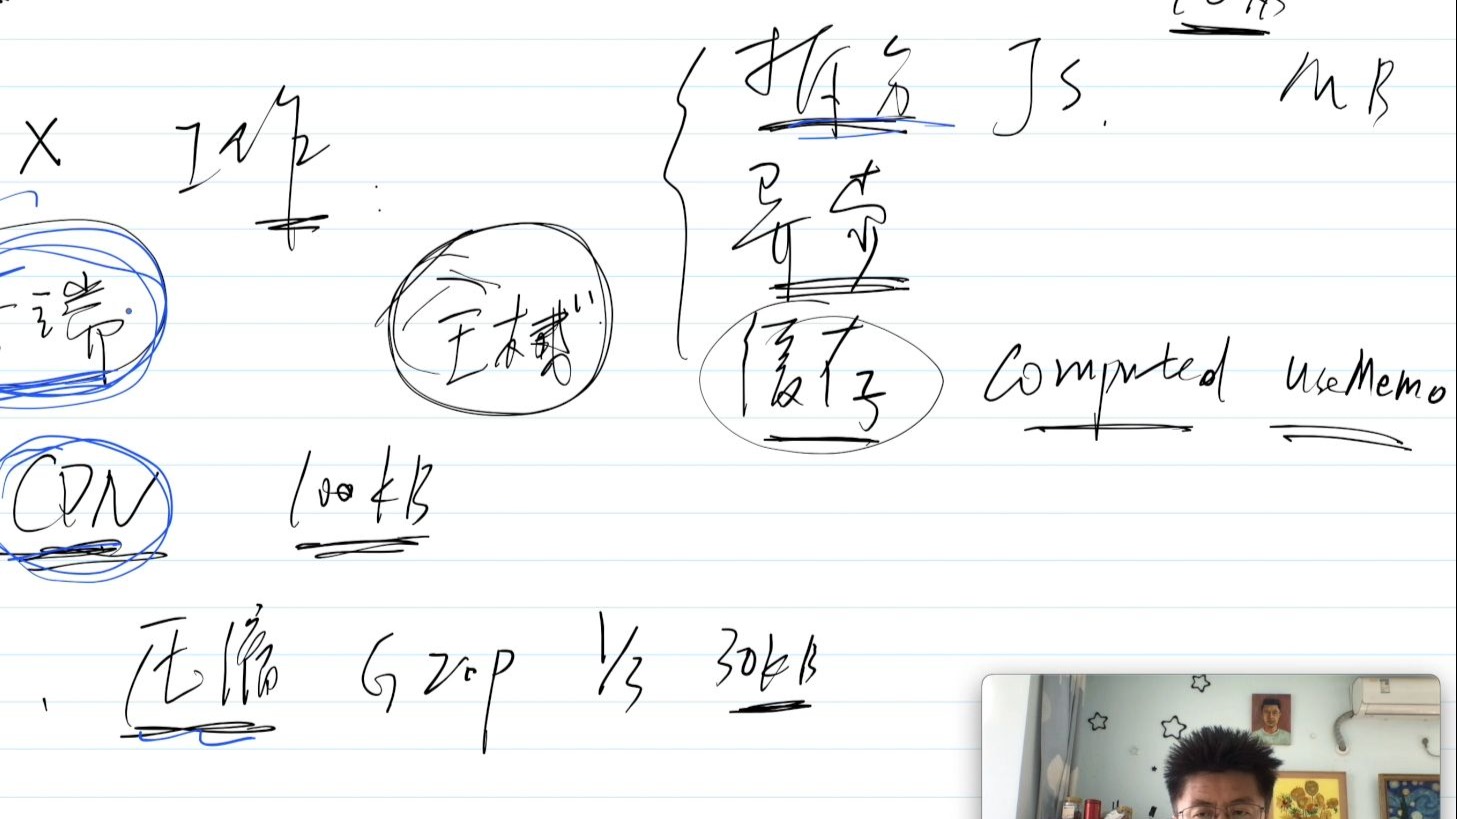 拆分 JS. MB
X 工作
异步
端
缓存 Computed useMemo
CDN 100kB
压缩 Gzip 1/3 30kB